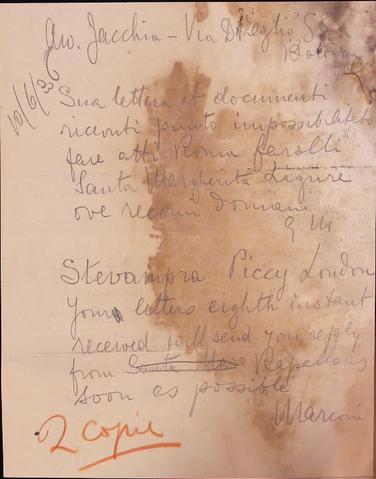 Avv. Jacchia - Via D'Azeglio 58
Bologna
10/6/36
Sua lettera et documenti
ricevuti punto impossibilitato
fare atti Roma farolli
Santa Margherita Ligure
ove recomi domani
G M
Stevampra Piccy London
Your letters eighth instant
received will send you reply
from Santa Marg Rapallo as
soon as possible
Marconi
2 copie